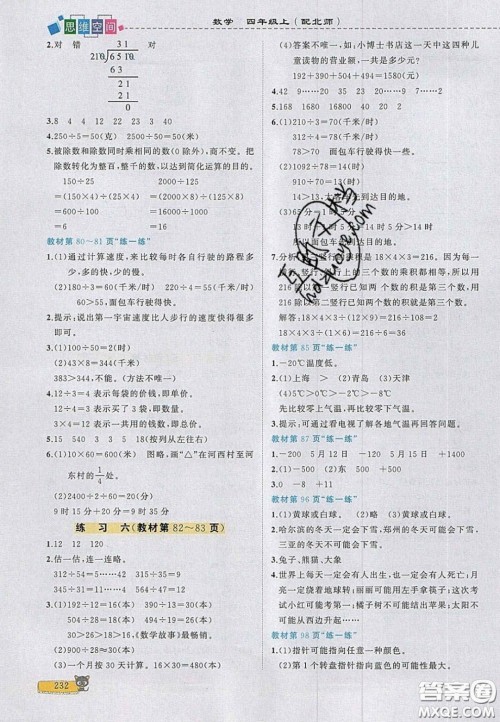 思维空间
数学 四年级上(配北师)
2.对 错
31
210)6510
63
21
21
0
3.8 4 4 12 22 23 39
4.250÷5=50(克) 2500÷50=50(克)
5.被除数和除数同时乘相同的数(0除外),商不变。把
除数转化为整百、整千的数,以达到简化运算的目的。
150÷25 2000÷125
=(150×4)÷(25×4) =(2000×8)÷(125×8)
=600÷100 =16000÷1000
=6 =16
教材第80~81页“练一练”
1.(1)通过计算速度,来比较每时各自行驶的路程多
少,多的快,少的慢。
(2)180÷3=60(千米/时)
60>55,面包车行驶得快。
2.提示:说出第一宇宙速度比人步行的速度快得很多
即可。
3.(1)100÷50=2(时)
(2)43×8=344(千米)
383>344,不能。(方法不唯一)
4.12÷3=4表示每袋的价钱,即单价。
12÷4=3表示买了3袋,即数量。
3×4=12表示一共用的钱数,即总价。
5.152 540 3 3 5 18(按列从左往右)
6.(1)15×40=600(米) 图略,画“△”在河西村至河
东村的1/4处。
(2)600÷30=20(分)
9时15分+20分=9时35分
练习六(教材第82~83页)
1.12 12 120
2.估一估,连一连略。
312÷54=5……42 315÷35=9
372÷45=8……12 420÷60=7
457÷57=8……1 364÷52=7
3.(1)210÷7=30(本) 270÷15=18(本)
224÷8=28(本) 180÷9=20(本)
30>28>18,《数学故事》最畅销。
(2)一个月按30天计算。16×30=480(本)
(4)答案不唯一,如:小博士书店这一天中这四种儿
童读物的营业额,一共是多少元?
192+390+504+180=1266(元)
4.42 9……6 5……17
5.168 1680 16800 20 200 200
6.(1)210÷3=70(千米/时)
312÷4=78(千米/时)
78>70 面包车行驶得快一些。
(2)1092÷78=14(时)
(3)8时+5时=13时
7.提示:
18×4×3÷(12×9)=216÷108=2
18×4×3÷(6×1)=216÷6=36
教材第85页“练一练”
1.-20℃温度低。
2.(1)上海 (2)青岛 (3)天津
先比较零上气温,再比较零下气温。
3.提示:可通过看电视了解各地气温再回答问题。
教材第87页“练一练”
2.(1)-500 (2)东 +500
3.0 -8 +11
教材第96页“练一练”
1.(1)黄球或白球。 (2)黄球或白球。
2.哈尔滨的冬天一定会下雪,郑州的冬天可能会下雪,
三亚的冬天不可能会下雪。
3.兔子、熊猫、大象
4.世界上每天一定会有人出生,也一定会有人死亡;月
亮一定绕着地球转;丽丽可能用左手拿筷子;这次考
试小红可能考了100分;橘子树不可能结出苹果;太阳
不可能从西边升起……
教材第98页“练一练”
1.(1)指针可能指向任意一种颜色。
(2)第1个转盘指针指向蓝色的可能性最大。
232
答案圈
MXQE.COM